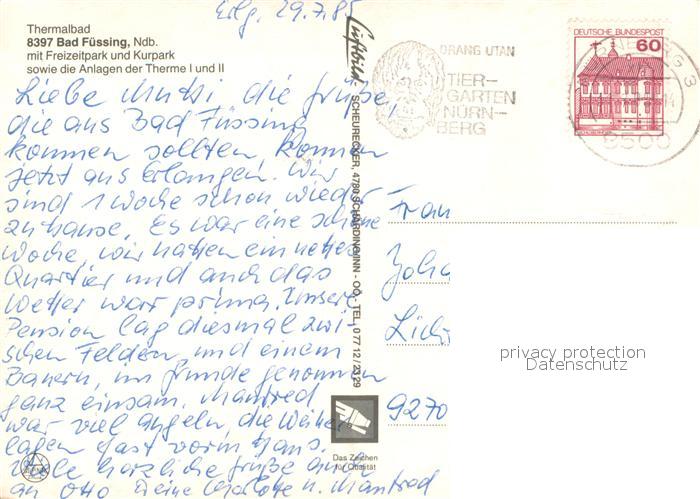 Erlg. 29.7.85
Thermalbad
8397 Bad Füssing, Ndb.
mit Freizeitpark und Kurpark
sowie die Anlagen der Therme I und II
Liebe Mutti die Grüße,
die aus Bad Füssing
kommen sollten, kommen
jetzt aus Erlangen. Wir
sind 1 Woche schon wieder
zuhause. Es war eine schöne
Woche, wir hatten ein nettes
Quartier und auch das
Wetter war prima. Unsere
Pension lag diesmal zwi-
schen Feldern, und einem
Bauern, im Grunde genommen
ganz einsam. Manfred
war viel angeln, die Weiher
lagen fast vorm Haus.
Viele herzliche Grüße auch
an Otto Deine Charlotte u. Manfred
Luftbild:
SCHEURECKER, 4780 SCHÄRDING/INN - OÖ. - TEL. 0 77 12 / 23 29
Das Zeichen
für Qualität
ORANG UTAN
TIER-
GARTEN
NÜRN-
BERG
DEUTSCHE BUNDESPOST
60
8500
Frau
9270
privacy protection
Datenschutz